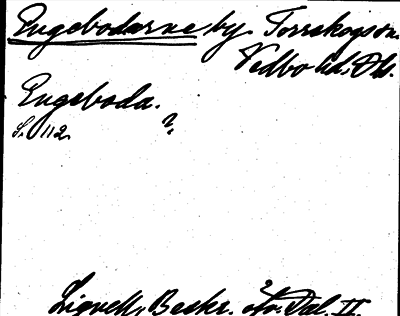 Engebodarne by Torrskogs sn.
Vedbo hd, Dls.
Engeboda.
S. 112 ?
Lignell, Beskr. öfv. Dal. II.